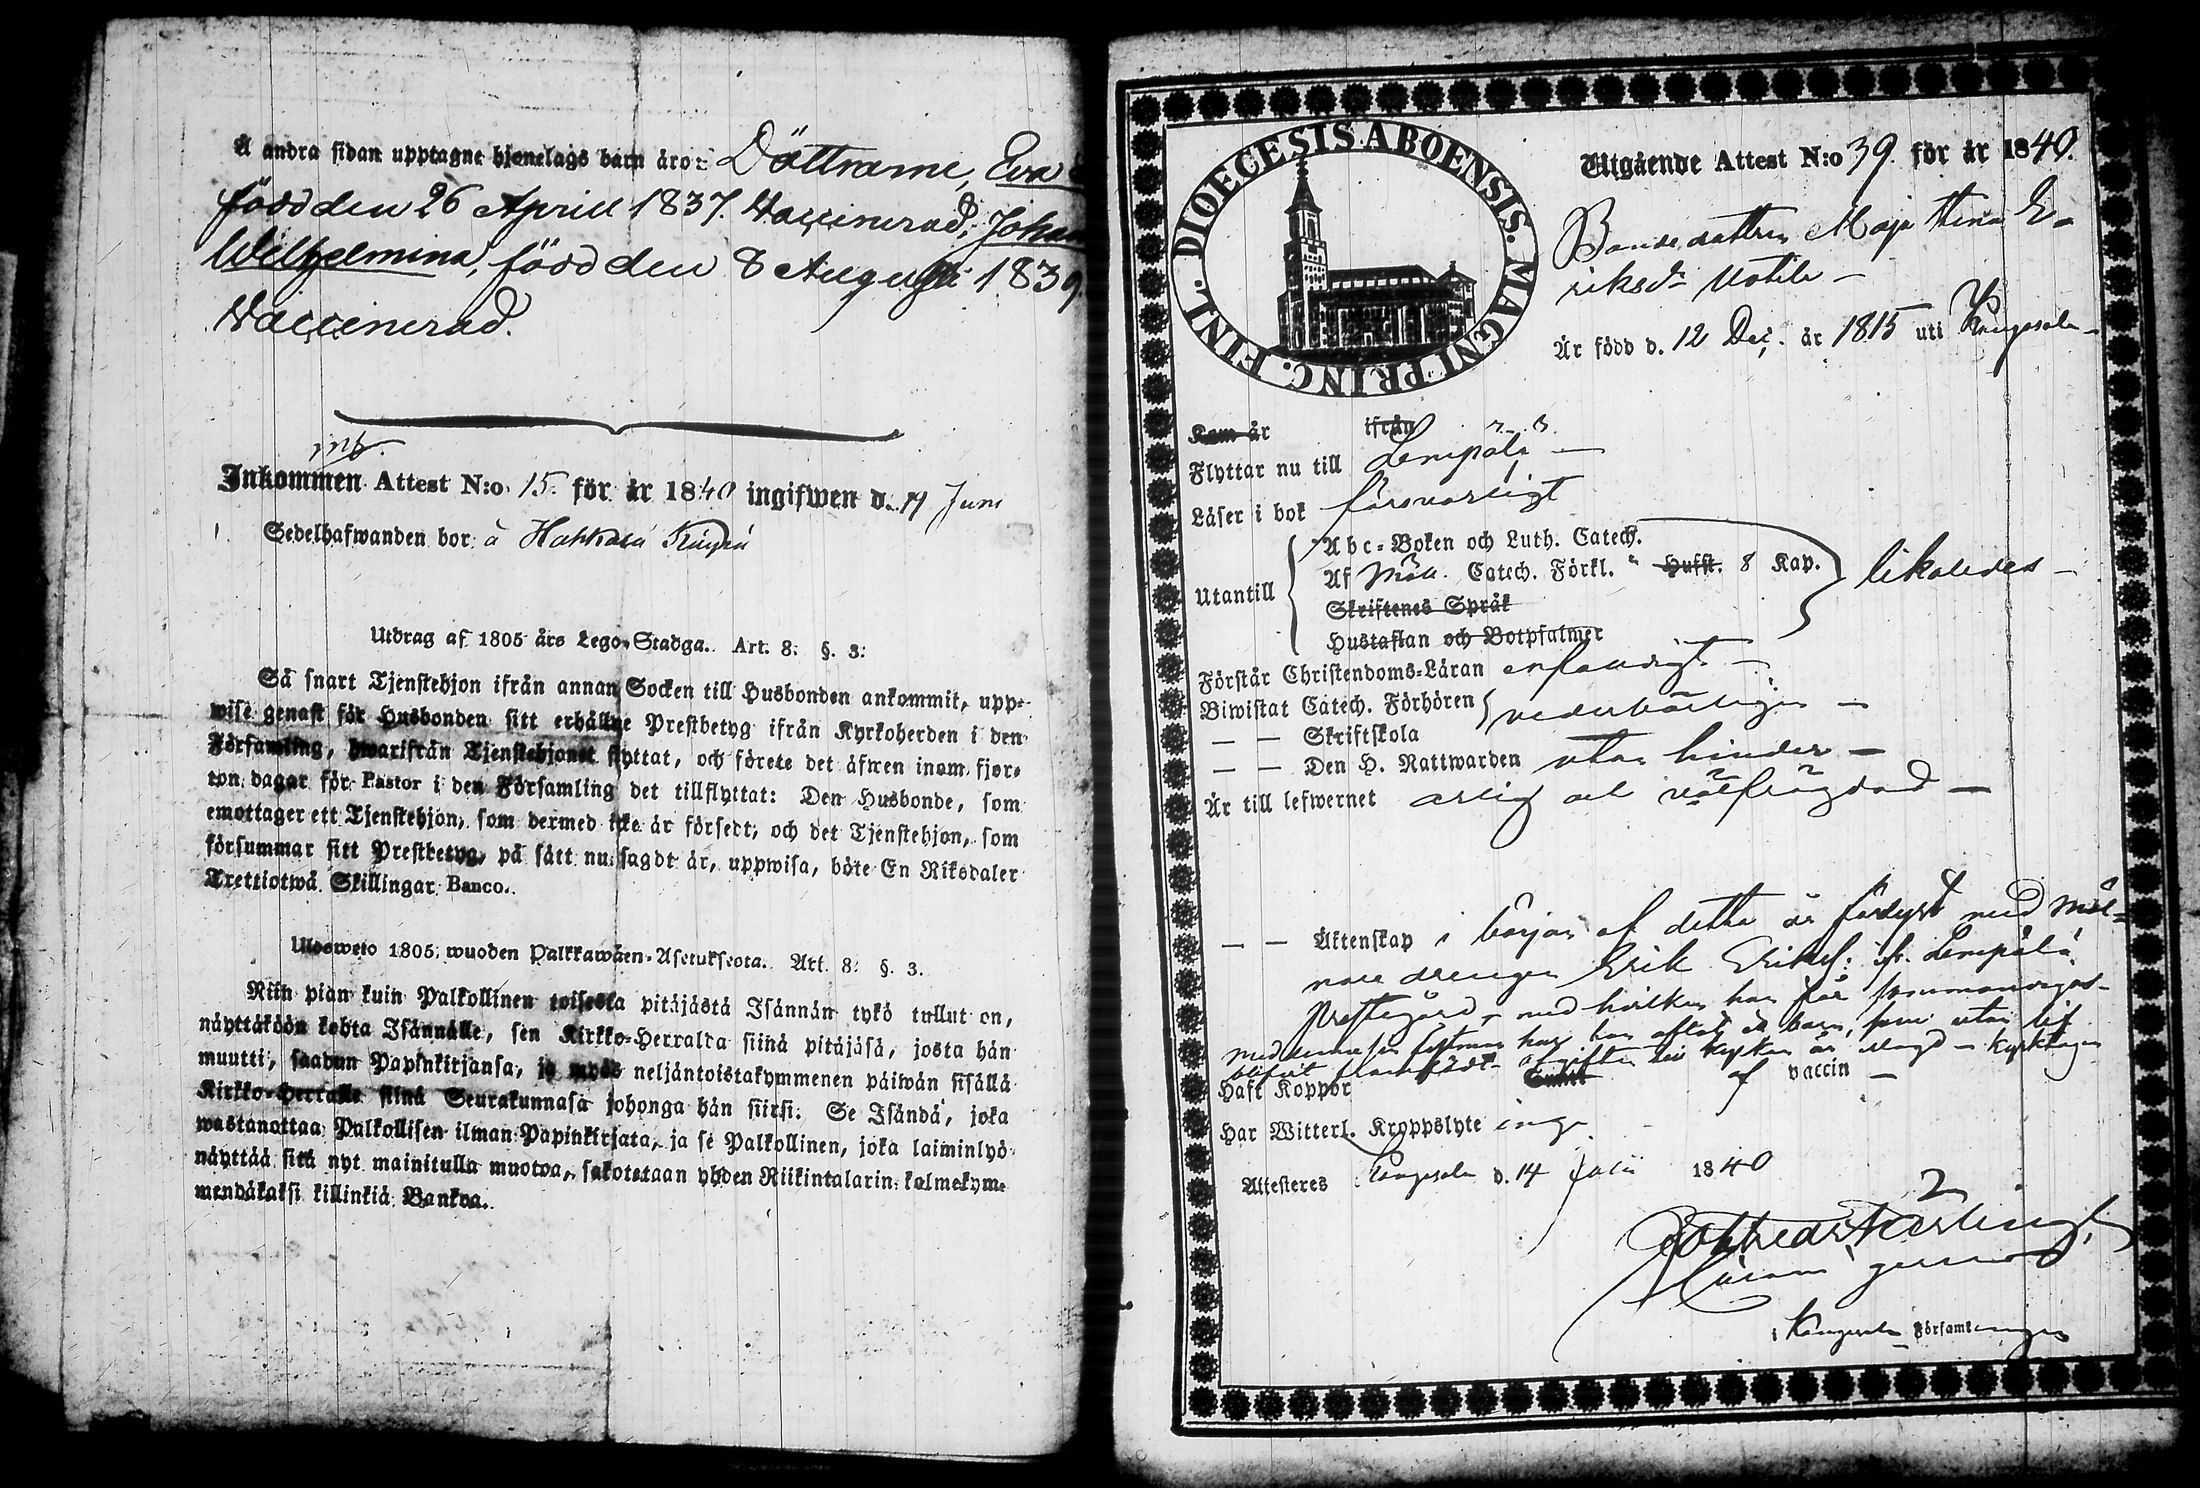 Å andra sidan upptagne hjonelags barn äro: Döttrarne, Eva
född den 26 Aprill 1837. Vaccinerad; Johan
Wilhelmina, född den 8 Augusti 1839.
Vaccinerad.
Inkommen Attest N:o 15. för år 1840 ingifwen d. 19 Juni
Sedelhafwanden bor: å Hakkala
Utdrag af 1805 års Lego-Stadga. Art. 8. §. 3.
Så snart Tjenstehjon ifrån annan Socken till Husbonden ankommit, upp-
wise genast för Husbonden sitt erhållne Prestbetyg ifrån Kyrkoherden i den
Församling, hwarifrån Tjenstehjonet flyttat, och förete det äfwen inom fjor-
ton dagar för Pastor i den Församling det tillflyttat: Den Husbonde, som
emottager ett Tjenstehjon, som dermed icke är försedt, och det Tjenstehjon, som
försummar sitt Prestbetyg, på sätt nu sagdt är, uppwisa, böte En Riksdaler
Trettiotwå Skillingar Banco.
Ulosweto 1805 wuoden Palkkawäen-Asetuksesta. Art. 8. §. 3.
Niin pian kuin Palkollinen toisesta pitäjästä Isännän tykö tullut on,
näyttäköön kohta Isännälle, sen Kirkko-Herralta siinä pitäjäsä, josta hän
muutti, saadun Papinkirjansa, ja myös neljäntoistakymmenen päiwän sisällä
Kirkko-Herralle siinä Seurakunnasa johonga hän siirsi. Se Isändä, joka
wastanottaa Palkollisen ilman Papinkirjata, ja se Palkollinen, joka laiminlyö
näyttää sitä nyt mainitulla muotoa, sakotetaan yhden Riikintalarin kolmekym-
mendäkaksi killinkiä Bankoa.
DIOECESIS ABOENSIS. MAGNI PRINC. FINL.
Utgående Attest N:o 39. för år 1840.
Bondedottren Maja Stina E-
riksdr Uotila
Är född d. 12 Dec. år 1815 uti Kangasala
Kom år ifrån
Flyttar nu till Lempälä
Läser i bok försvarligt
Utantill
Abc-Boken och Luth. Catech.
Af Möll. Catech. Förkl. Hufst. 8 Kap. likaledes
Skriftenes Språk
Hustaflan och Botpsalmer
Förstår Christendoms-Läran enfaldigt
Biwistat Catech. Förhören vederbörligen
— — Skriftskola
— — Den H. Nattwarden utan hinder
Är till lefwernet ärlig och välfrägdad
— — Äktenskap i början af detta år fästgord med Möl-
nare drengen Erik Eriks: ifr. Lempälä
Prestegård, med hvilken hon får sammanvigas
med denne sin fästman har hon aflat et barn, som utan lif
blifvit framfödt
Haft Koppor Enligt af vaccin
Har Witterl. Kroppslyte inga
Attesteres Kangasala d. 14 Julii 1840
i Kangasala Församlingen